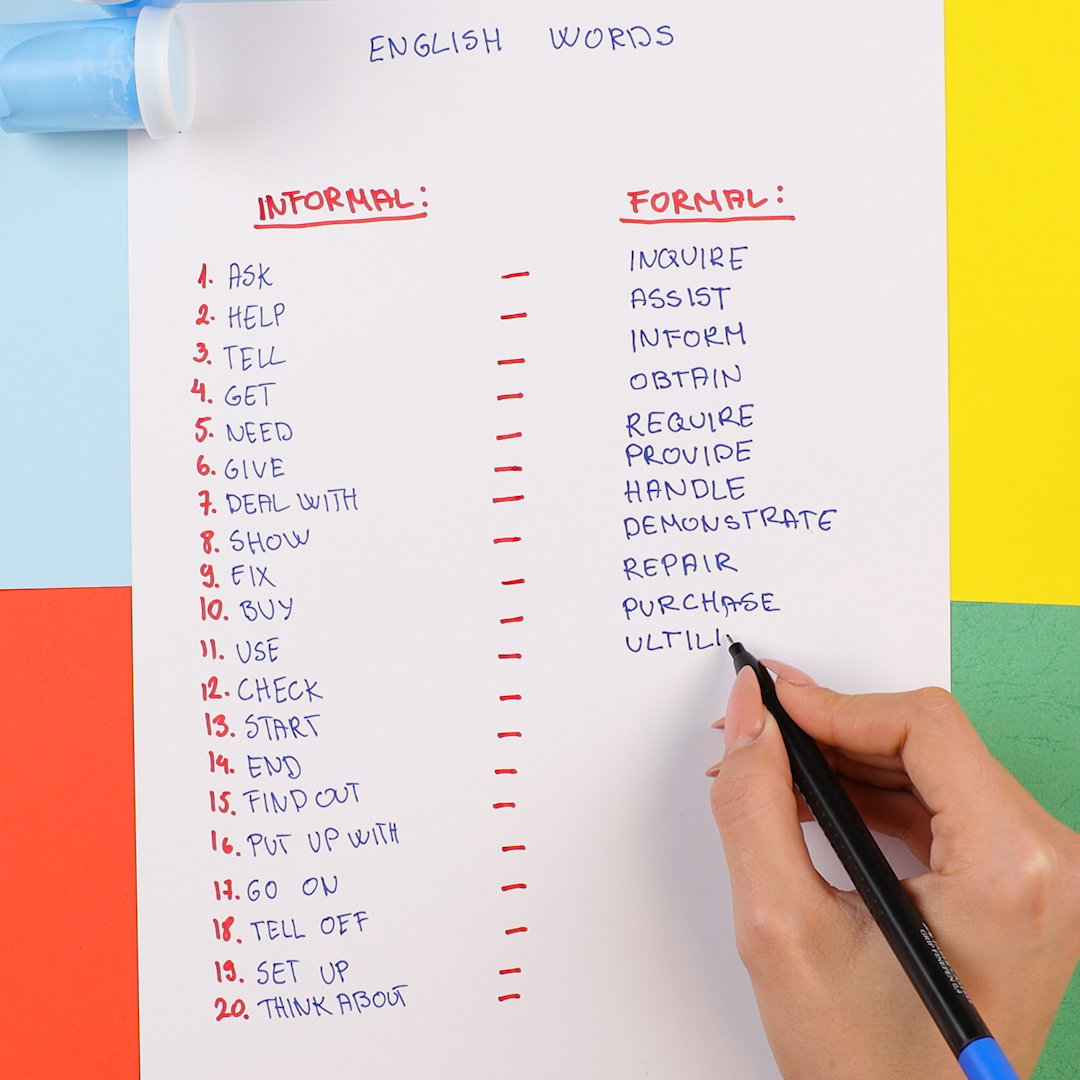 ENGLISH WORDS
INFORMAL: FORMAL:
1. ASK – INQUIRE
2. HELP – ASSIST
3. TELL – INFORM
4. GET – OBTAIN
5. NEED – REQUIRE
6. GIVE – PROVIDE
7. DEAL WITH – HANDLE
8. SHOW – DEMONSTRATE
9. FIX – REPAIR
10. BUY – PURCHASE
11. USE – ULTILI
12. CHECK –
13. START –
14. END –
15. FIND OUT –
16. PUT UP WITH –
17. GO ON –
18. TELL OFF –
19. SET UP –
20. THINK ABOUT –